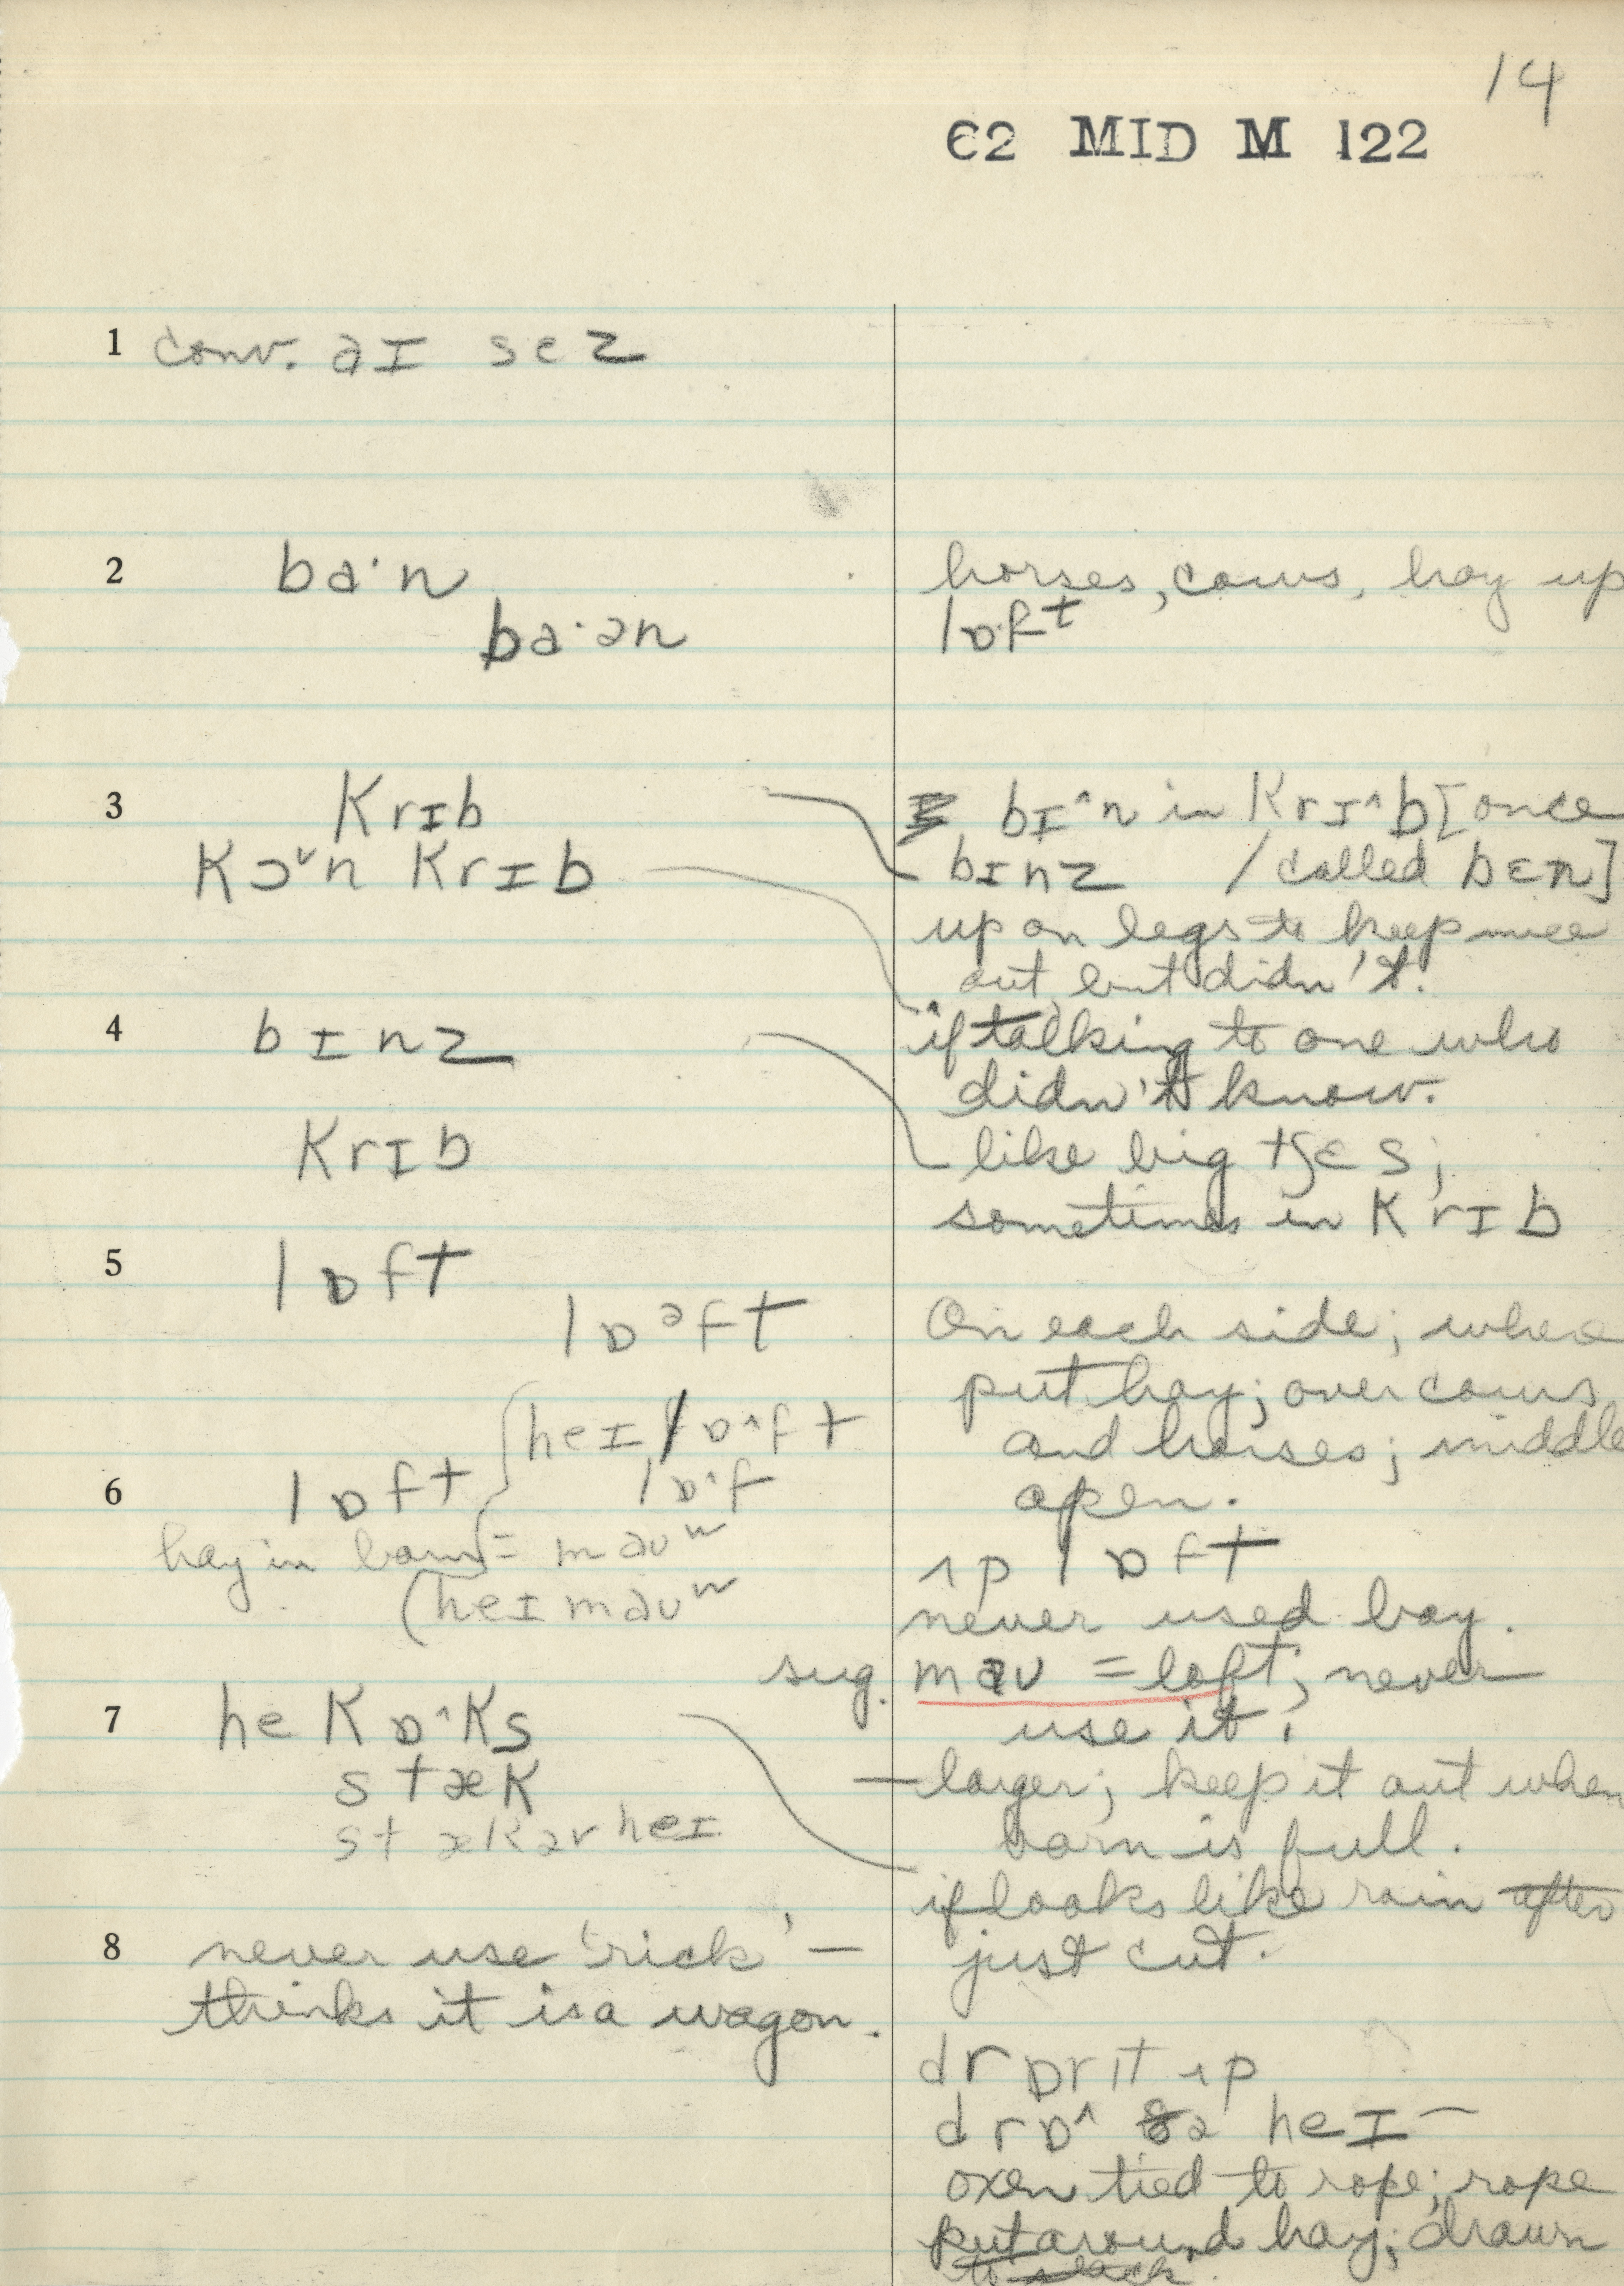 14
C2 MID M 122
1 conv. aɪ sez
2 ba·n
ba·ən
horses, cows, hay up
lɒft
3 Krɪb
Kɔ˅n Krɪb
bɪ^n in Krɪ^b [once
bɪnz / called bɛn]
up on legs to keep mice
out, but didn't.
4 bɪnz
Krɪb
if talking to one who
didn't know.
like big tʃɛs;
sometimes in Krɪb
5 lɒft
lɒᵊft
On each side; where
put hay; over cows
and horses; middle
open.
heɪ lɒ^ft
lɒ^f
6 lɒft
hay in barn = maʊʷ
(heɪ maʊʷ
ʌp lɒft
never used bay.
sug. maʊ = loft; never
use it.
7 he Kɒ^Ks
stæK
stæK ər heɪ
— larger; keep it out when
barn is full.
if looks like rain after
just cut.
8 never use 'rick' —
thinks it is a wagon.
drɒr ɪt ʌp
drɒ^ ðə heɪ —
oxen tied to rope; rope
put around hay; drawn
to stack.